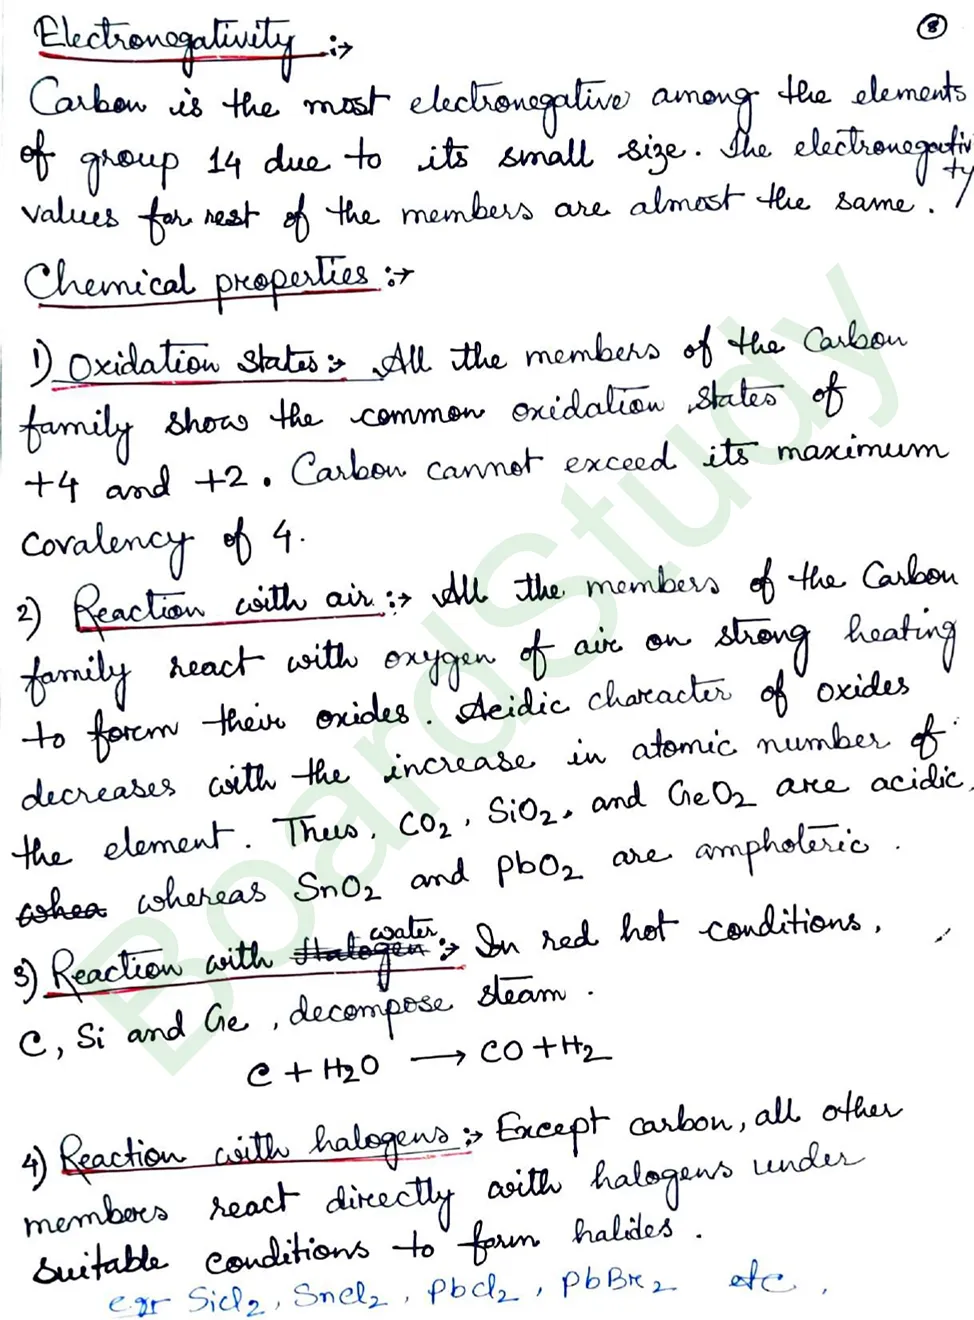 8
Electronegativity :→
Carbon is the most electronegative among the elements
of group 14 due to its small size. The electronegativity
values for rest of the members are almost the same.
Chemical properties :→
1) Oxidation states :→ All the members of the Carbon
family show the common oxidation states of
+4 and +2. Carbon cannot exceed its maximum
covalency of 4.
2) Reaction with air :→ All the members of the Carbon
family react with oxygen of air on strong heating
to form their oxides. Acidic character of oxides
decreases with the increase in atomic number of
the element. Thus, CO2, SiO2, and GeO2 are acidic,
whea whereas SnO2 and PbO2 are ampholeric.
3) Reaction with Halogen water :→ In red hot conditions,
C, Si and Ge, decompose steam.
C + H2O → CO + H2
4) Reaction with halogens :→ Except carbon, all other
members react directly with halogens under
suitable conditions to form halides.
egr SiCl2, SnCl2, PbCl2, PbBr2 etc,
BoardStudy